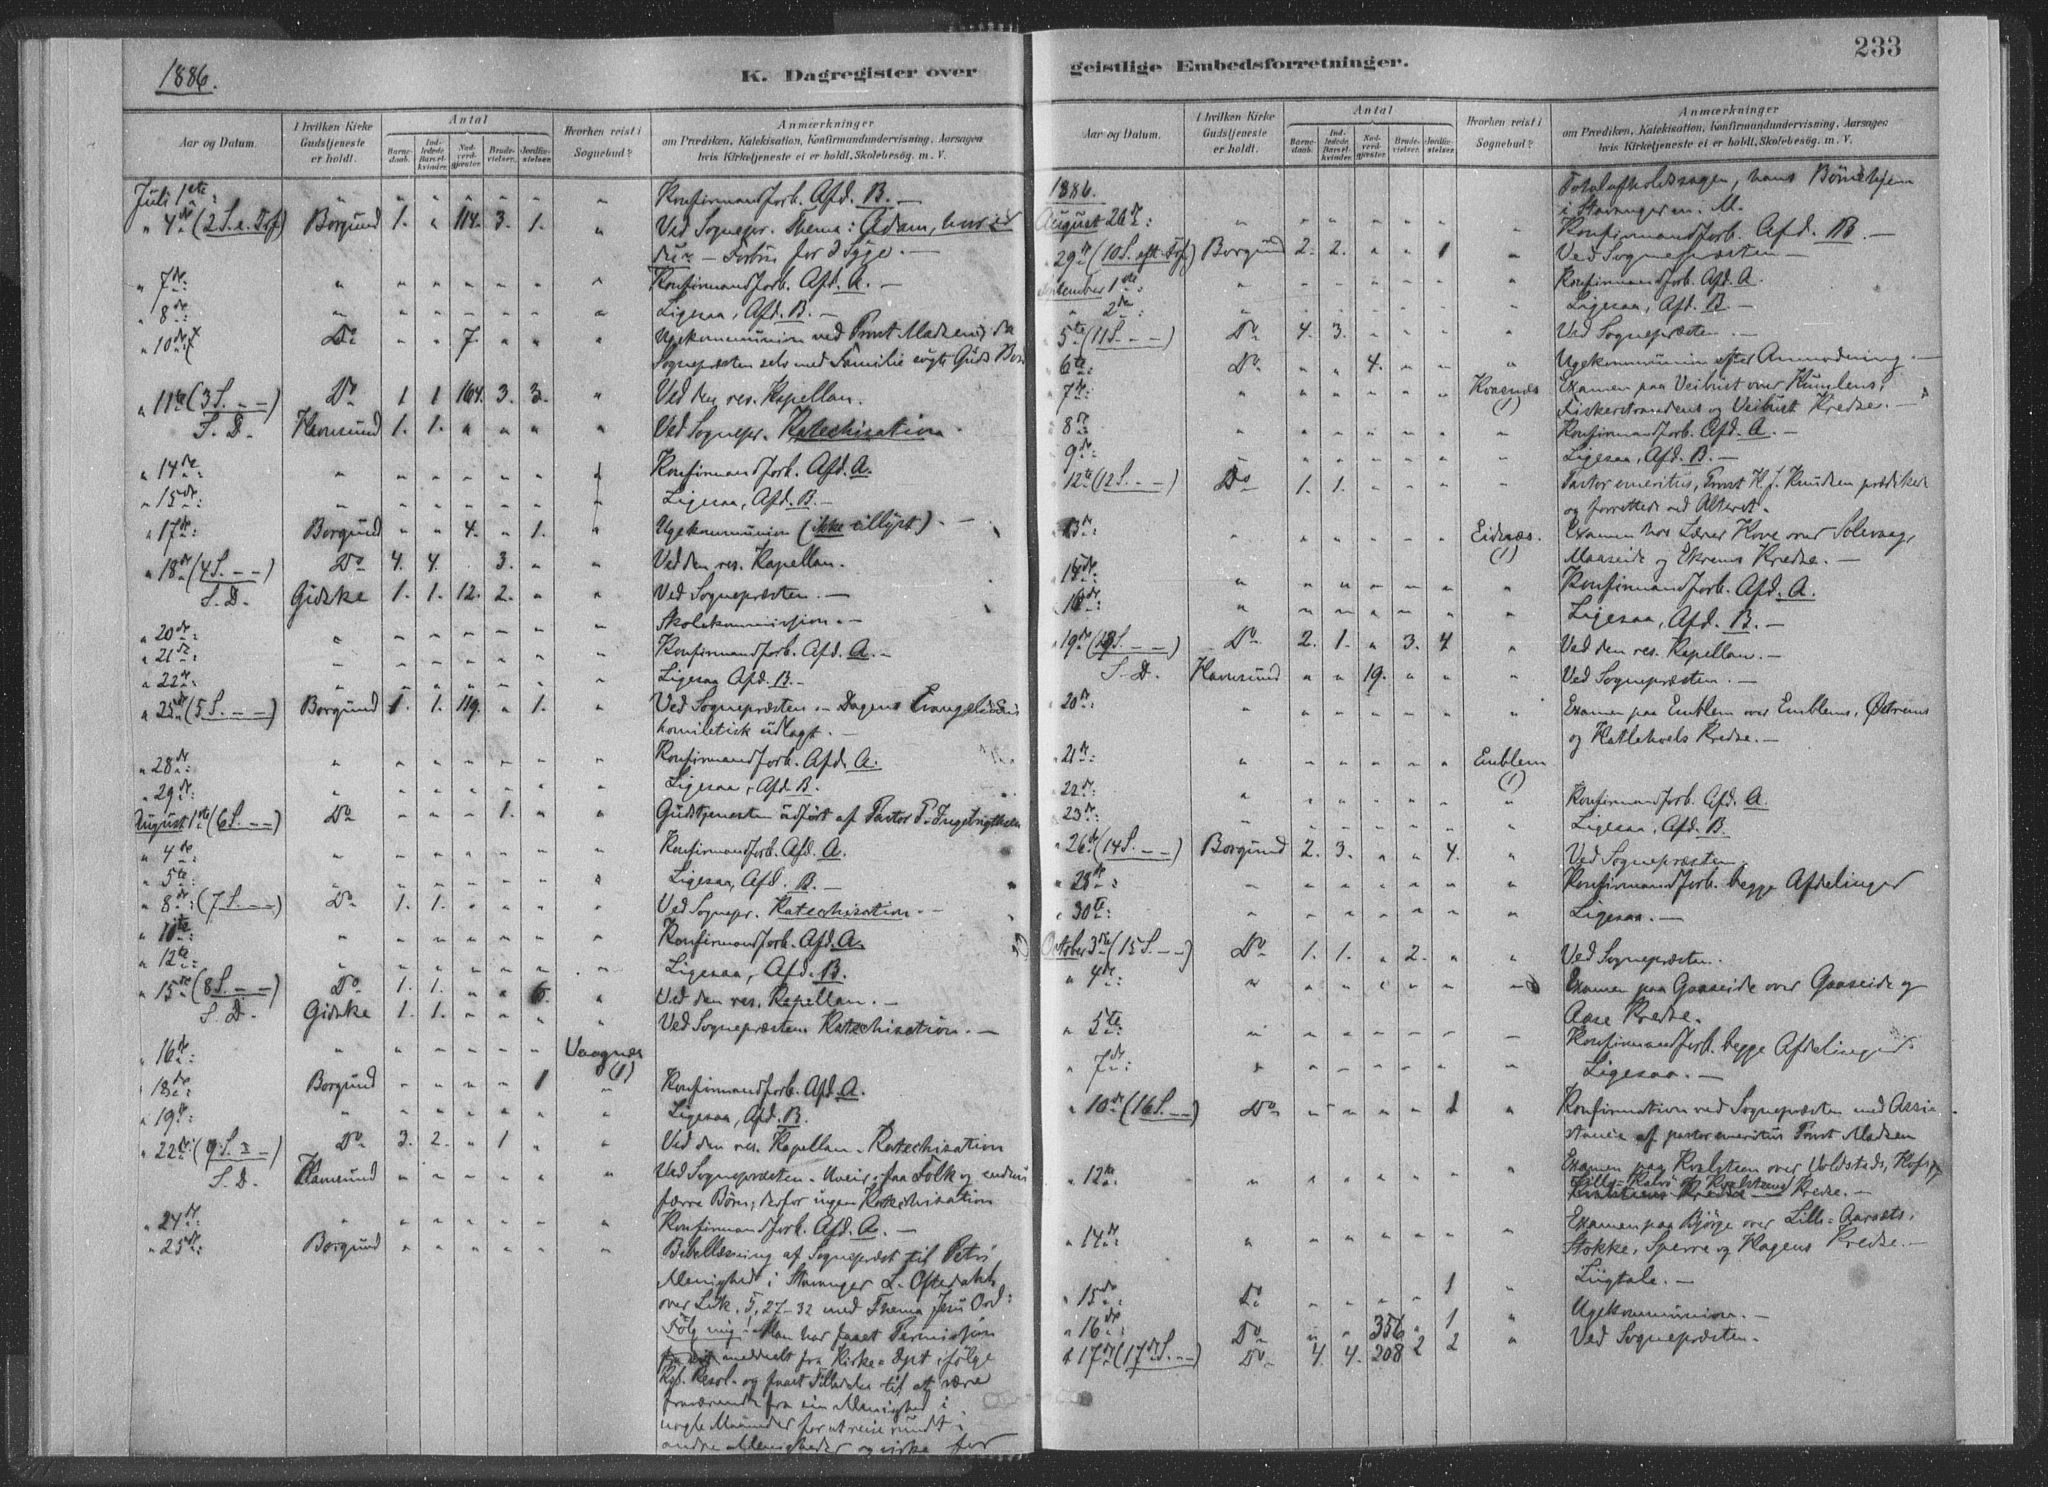 1886.
K. Dagregister over
Aar og Datum.
I hvilken Kirke Gudstjeneste er holdt.
Antal
Barnedaab.
Indledede Barselkvinder.
Nadverdgjester.
Brudevielser.
Jordfæstelser.
Hvorhen reist i Sognebud?
Anmærkninger
om Prædiken, Katekisation, Konfirmandundervisning, Aarsagen
hvis Kirketjeneste ei er holdt, Skolebesøg. m. V.
Juli 1ste: " " " " " " " Konfirmandforb. Afd. B. —
" 4de (2 S. e. Trf.) Borgund 1. " 114. 3. 1. " Ved Sognepr. Thema: Adam, hvor er
du? — Forbøn for 2 Syge. —
" 7de: " " " " " " " Konfirmandforb. Afd. A. —
" 8de: " " " " " " " Ligesaa, Afd. B. —
" 10de: Do " " 7. " " " Ugekommunion ved Provst Madsen, da
Sognepræsten selv med Familie søgte Guds Bord
" 11te (3 S. — —) Do 1 1 164. 3. 3. " Ved den res. Kapellan.
S. D. Havnsund 1. 1. " " " " Ved Sognepr. Katechisation.
" 14de " " " " " " " Konfirmandforb. Afd. A.
" 15de: " " " " " " " Ligesaa, Afd. B. —
" 17de: Borgund " " 4. " 1. " Ugekommunion (ikke tillyst). —
" 18de (4 S. — —) Do 4. 4. . 3. " " Ved den res. Kapellan. —
S. D. Gidske 1. 1. 12. 2. " " Ved Sognepræsten. —
" 20de: " " " " " " " Skolekommission. —
" 21de: " " " " " " " Konfirmandforb. Afd. A. —
" 22de: " " " " " " " Ligesaa Afd. B. —
" 25de (5 S. — —) Borgund 1. 1. 119. " 1. " Ved Sognepræsten — Dagens Evangelium
homiletisk udlagt. —
" 28de: " " " " " " " Konfirmandforb. Afd. A.
" 29de: " " " " " " " Ligesaa, Afd. B. —
August 1ste (6 S. — —) Do " " " 1. " " Gudstjenesten udført af Pastor P. Ingebrigtsen
" 4de " " " " " " " Konfirmandforb. Afd. A.
" 5te: " " " " " " " Ligesaa, Afd. B. —
" 8de: (7 S. — —) Do 1. 1. " " " " Ved Sognepr. Katechisation. —
" 10te " " " " " " " Konfirmandforb. Afd. A.
" 12te: " " " " " " " Ligesaa, Afd. B.
" 15de (8 S. — —) Do 1. 1. " " 6. " Ved den res. Kapellan. —
S. D. Gidske 1. 1. " " " " Ved Sognepræsten Katechisation. —
" 16de: " " " " " " Vaagnæs (1)
" 18de: Borgund " " " " 1 " Konfirmandforb. Afd. A.
" 19de: " " " " " " " Ligesaa, Afd. B.
" 22de: (9 S. — —) Do 3. 2. " 1 " " Ved den res. Kapellan. Katechisation
S. D. Havnsund " " " " " " Ved Sognepræsten. Uveir, faa Folk og endnu
færre Børn, derfor ingen Katechisation
" 24de: " " " " " " " Konfirmandforb. Afd. A. —
" 25de: Borgund " " " " " " Bibellæsning af Sognepræst til Petri
Menighed i Stavanger L. Oftedahl
over Luk. 5, 27-32 med Thema Jesu Ord:
Følg mig! Man har faaet Permission
meddelt fra Kirke-Dpt ifølge
Kgl. Resol. og faaet Tilladelse til at være
fraværende fra sin Menighed i
nogle Maaneder for at reise rundt i
andre Menigheder og virke for
geistlige Embedsforretninger.
233
Aar og Datum.
I hvilken Kirke Gudstjeneste er holdt.
Antal
Barnedaab.
Indledede Barselkvinder.
Nadverdgjester.
Brudevielser.
Jordfæstelser.
Hvorhen reist i Sognebud?
Anmærkninger
om Prædiken, Katekisation, Konfirmandundervisning, Aarsagen
hvis Kirketjeneste ei er holdt, Skolebesøg. m. V.
1886. Totalafholdssagen, hans Børnehjem
i Stavanger m. M.
August 26de: " " " " " " " Konfirmandforb. Afd. B. —
" 29de (10 S. eft. Trf.) Borgund 2. 2. " " 1 " Ved Sognepræsten —
September 1ste: " " " " " " " Konfirmandforb. Afd. A.
" 2de: " " " " " " " Ligesaa, Afd. B —
" 5te (11 S. — —) Do 4. 3. " " " " Ved Sognepræsten. —
" 6te: Do " " 4. " " " Ugekommunion efter Anmodning. —
" 7de: " " " " " " Kvasnæs (1) Examen paa Veibust over Humlens,
Fiskerstrandens og Veibust Kredse. —
" 8de " " " " " " " Konfirmandforb. Afd. A. —
" 9de: " " " " " " " Ligesaa, Afd. B. —
" 12te (12 S. — —) Do 1. 1. " " " " Pastor emeritus, Provst H. J. Knudsen prædikede
og forrettede ved Alteret.
" 13de: " " " " " " Eidnæs. (1) Examen hos Lærer Hove over Solevaag,
Maaseide og Ekrems Kredse. —
" 15de: " " " " " " Konfirmandforb. Afd. A.
" 16de: " " " " " " " Ligesaa, Afd. B. —
" 19de (13 S. — —) Do 2. 1. " 3. 4 " Ved den res. Kapellan. —
S. D. Havnsund " " 19. " " " Ved Sognepræsten. —
" 20de: " " " " " " " Examen paa Emblem over Emblems, Østrems
og Hatlehols Kredse. —
" 21de: " " " " " " Emblem (1)
" 22de: " " " " " " " Konfirmandforb. Afd. A.
" 23de: " " " " " " " Ligesaa, Afd. B.
" 26de (14 S. — —) Borgund 2. 3. " " 4. " Ved Sognepræsten.
" 28de: " " " " " " " Konfirmandforb. begge Afdelinger
" 30te: " " " " " " " Ligesaa. —
October 3de (15 S. — —) Do 1. 1. " 2. " " Ved Sognepræsten.
" 4de: " " " " " " " Examen paa Gaaseide over Gaaseide og
Aase Kredse.
" 5te: " " " " " " " Konfirmandforb. begge Afdelinger.
" 7de: " " " " " " " Ligesaa. —
" 10de (16 S. — —) Do " " " " 1 " Konfirmation ved Sognepræsten med Assi-
stance af pastor emeritus Provst Madsen
" 12te " " " " " " " Examen paa Kvalsteen over Voldstads, Hofs,
Lille-Kalvø og Kvalsteens Kredse. —
" 14de: " " " " " " " Examen paa Bjørge over Lille-Aarsæts,
Stokke, Sperre og Hagens Kredse. —
" 15de: Do " " " " 1 " Liigtale. —
" 16de: Do " " 356 " 1 " Ugekommunion. —
" 17de (17de S. — —) Do 4. 4. 208 2 2 " Ved Sognepræsten. —